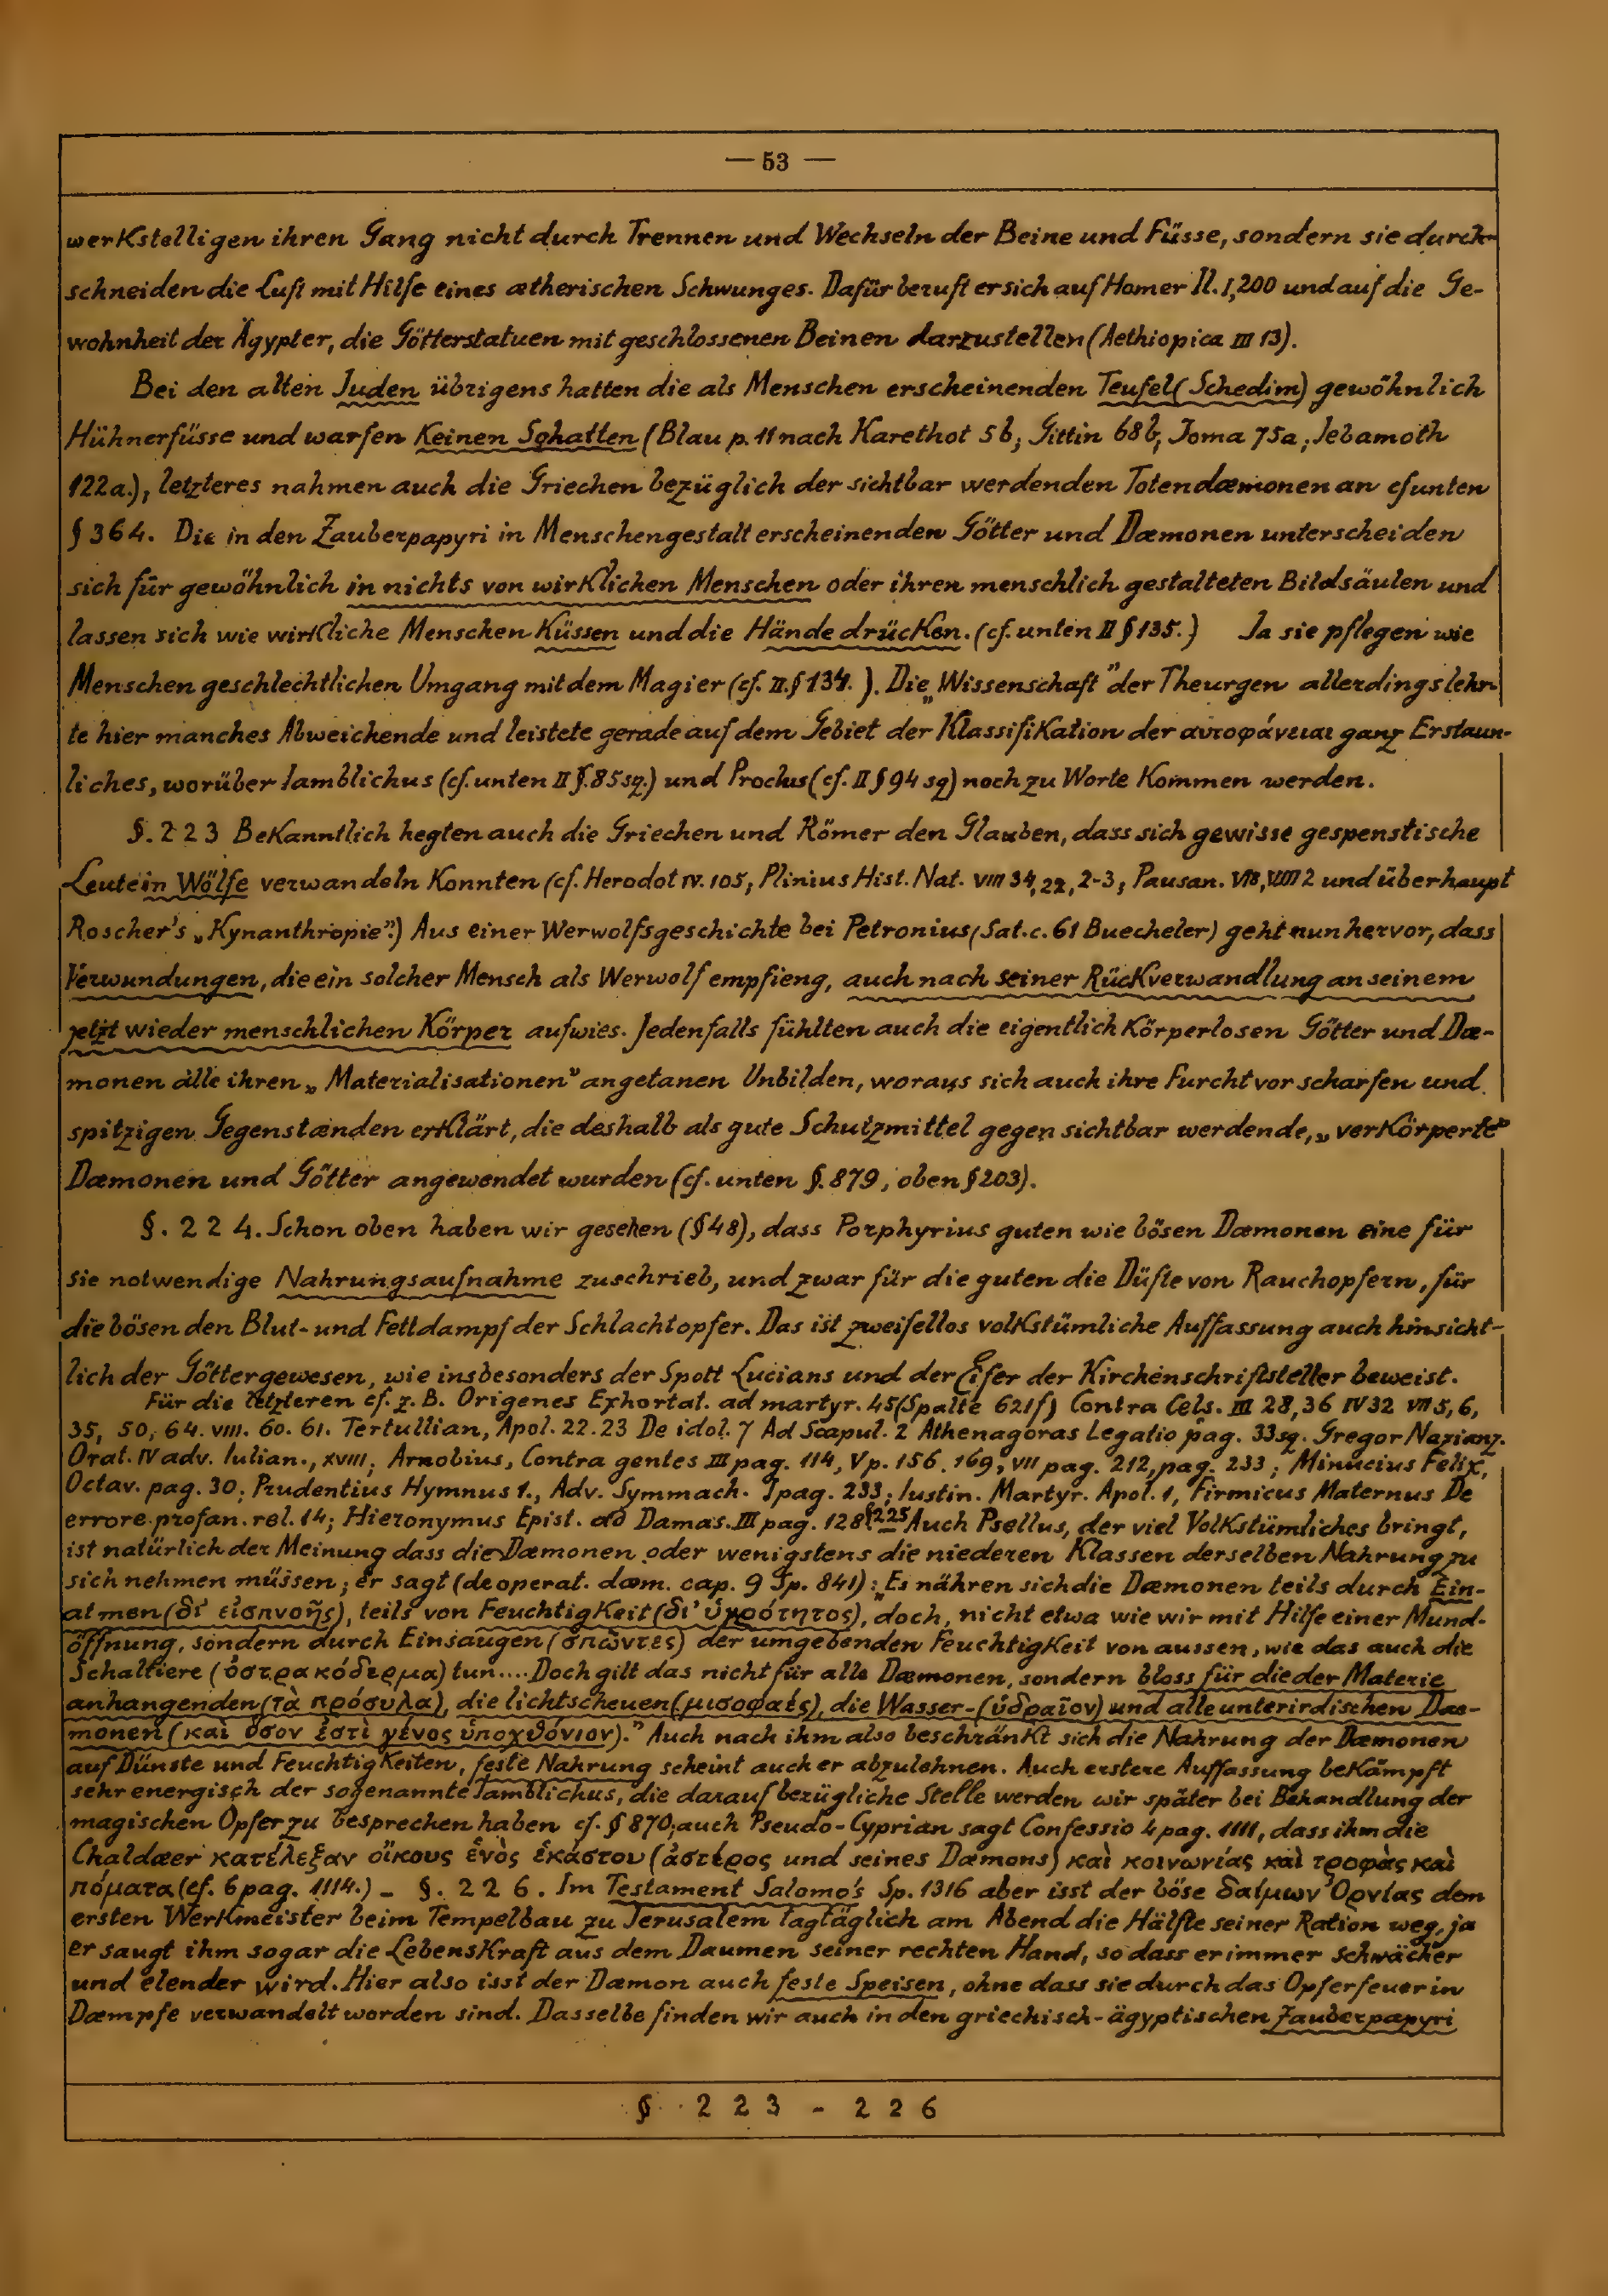 — 53 —
werkstelligen ihren Gang nicht durch Trennen und Wechseln der Beine und Füsse, sondern sie durch-
schneiden die Luft mit Hilfe eines ætherischen Schwunges. Dafür beruft er sich auf Homer Il. I, 200 und auf die Ge-
wohnheit der Ägypter, die Götterstatuen mit geschlossenen Beinen darzustellen (Aethiopica III 13).
Bei den alten Juden übrigens hatten die als Menschen erscheinenden Teufel (Schedim) gewöhnlich
Hühnerfüsse und warfen keinen Schatten (Blau p. 11 nach Karethot 5b, Gittin 68b, Joma 75a, Jebamoth
122a.), letzteres nahmen auch die Griechen bezüglich der sichtbar werdenden Totendæmonen an cf unten
§ 364. Die in den Zauberpapyri in Menschengestalt erscheinenden Götter und Dæmonen unterscheiden
sich für gewöhnlich in nichts von wirklichen Menschen oder ihren menschlich gestalteten Bildsäulen und
lassen sich wie wirkliche Menschen küssen und die Hände drücken. (cf. unten II § 135.) Ja sie pflegen wie
Menschen geschlechtlichen Umgang mit dem Magier (cf. II. § 134. ). Die „Wissenschaft" der Theurgen allerdings lehr-
te hier manches Abweichende und leistete gerade auf dem Gebiet der Klassifikation der αυτοφάνειαι ganz Erstaun-
liches, worüber Iamblichus (cf. unten II §. 85 sq.) und Proclus (cf. II § 94 sq) noch zu Worte kommen werden.
§. 223 Bekanntlich hegten auch die Griechen und Römer den Glauben, dass sich gewisse gespenstische
Leute in Wölfe verwandeln konnten (cf. Herodot IV. 105, Plinius Hist. Nat. VIII 34, 22, 2-3, Pausan. 2 und überhaupt
Roscher's „Kynanthropie".) Aus einer Werwolfsgeschichte bei Petronius (Sat. c. 61 Buecheler) geht nun hervor, dass
Verwundungen, die ein solcher Mensch als Werwolf empfieng, auch nach seiner Rückverwandlung an seinem
jetzt wieder menschlichen Körper aufwies. Jedenfalls fühlten auch die eigentlich körperlosen Götter und Dæ-
monen alle ihren „Materialisationen" angetanen Unbilden, woraus sich auch ihre Furcht vor scharfen und
spitzigen Gegenstænden erklärt, die deshalb als gute Schutzmittel gegen sichtbar werdende, „verkörperte"
Dæmonen und Götter angewendet wurden (cf. unten §. 879, oben § 203).
§. 224. Schon oben haben wir gesehen (§ 48), dass Porphyrius guten wie bösen Dæmonen eine für
sie notwendige Nahrungsaufnahme zuschrieb, und zwar für die guten die Düfte von Rauchopfern, für
die bösen den Blut- und Fettdampf der Schlachtopfer. Das ist zweifellos volkstümliche Auffassung auch hinsicht-
lich der Göttergewesen, wie insbesonders der Spott Lucians und der Eifer der Kirchenschriftsteller beweist.
Für die letzteren cf. z. B. Origenes Exhortat. ad martyr. 45 (Spalte 621 f) Contra Cels. III 28, 36 IV 32 VII 5, 6,
35, 50, 64. VIII. 60. 61. Tertullian, Apol. 22. 23 De idol. 7 Ad Scapul. 2 Athenagoras Legatio pag. 33 sq. Gregor Nazianz.
Orat. IV adv. Iulian., XVIII; Arnobius, Contra gentes III pag. 114, V p. 156. 169, VII pag. 212, pag. 233; Minucius Felix,
Octav. pag. 30; Prudentius Hymnus 1., Adv. Symmach. I pag. 233; Iustin. Martyr. Apol. 1, Firmicus Maternus De
errore profan. rel. 14; Hieronymus Epist. ad Damas. III pag. 128 § 225 Auch Psellus, der viel Volkstümliches bringt,
ist natürlich der Meinung dass die Dæmonen oder wenigstens die niederen Klassen derselben Nahrung zu
sich nehmen müssen; er sagt (de operat. dæm. cap. 9 Sp. 841): „Es nähren sich die Dæmonen teils durch Ein-
atmen (δι' εἰσπνοῆς), teils von Feuchtigkeit (δι' ὑγρότητος), doch, nicht etwa wie wir mit Hilfe einer Mund-
öffnung, sondern durch Einsaugen (σπῶντες) der umgebenden Feuchtigkeit von aussen, wie das auch die
Schaltiere (ὀστρακόδερμα) tun.... Doch gilt das nicht für alle Dæmonen, sondern bloss für die der Materie
anhangenden (τὰ πρόσυλα), die lichtscheuen (μισοφαές), die Wasser- (ὑδραῖον) und alle unterirdischen Dæ-
monen (καὶ ὅσον ἐστὶ γένος ὑποχθόνιον)." Auch nach ihm also beschränkt sich die Nahrung der Dæmonen
auf Dünste und Feuchtigkeiten, feste Nahrung scheint auch er abzulehnen. Auch erstere Auffassung bekämpft
sehr energisch der sogenannte Iamblichus, die darauf bezügliche Stelle werden wir später bei Behandlung der
magischen Opfer zu besprechen haben cf. § 870; auch Pseudo-Cyprian sagt Confessio 4 pag. 1111, dass ihm die
Chaldæer κατέλεξαν οἴκους ἑνὸς ἑκάστου (ἀστέρος und seines Dæmons) καὶ κοινωνίας καὶ τροφὰς καὶ
πόματα (cf. 6 pag. 1114.) – §. 226. Im Testament Salomo's Sp. 1316 aber isst der böse δαίμων Ὀρνίας dem
ersten Werkmeister beim Tempelbau zu Jerusalem tagtäglich am Abend die Hälfte seiner Ration weg, ja
er saugt ihm sogar die Lebenskraft aus dem Daumen seiner rechten Hand, so dass er immer schwächer
und elender wird. Hier also isst der Dæmon auch feste Speisen, ohne dass sie durch das Opferfeuer in
Dæmpfe verwandelt worden sind. Dasselbe finden wir auch in den griechisch-ägyptischen Zauberpapyri
§ 223 - 226